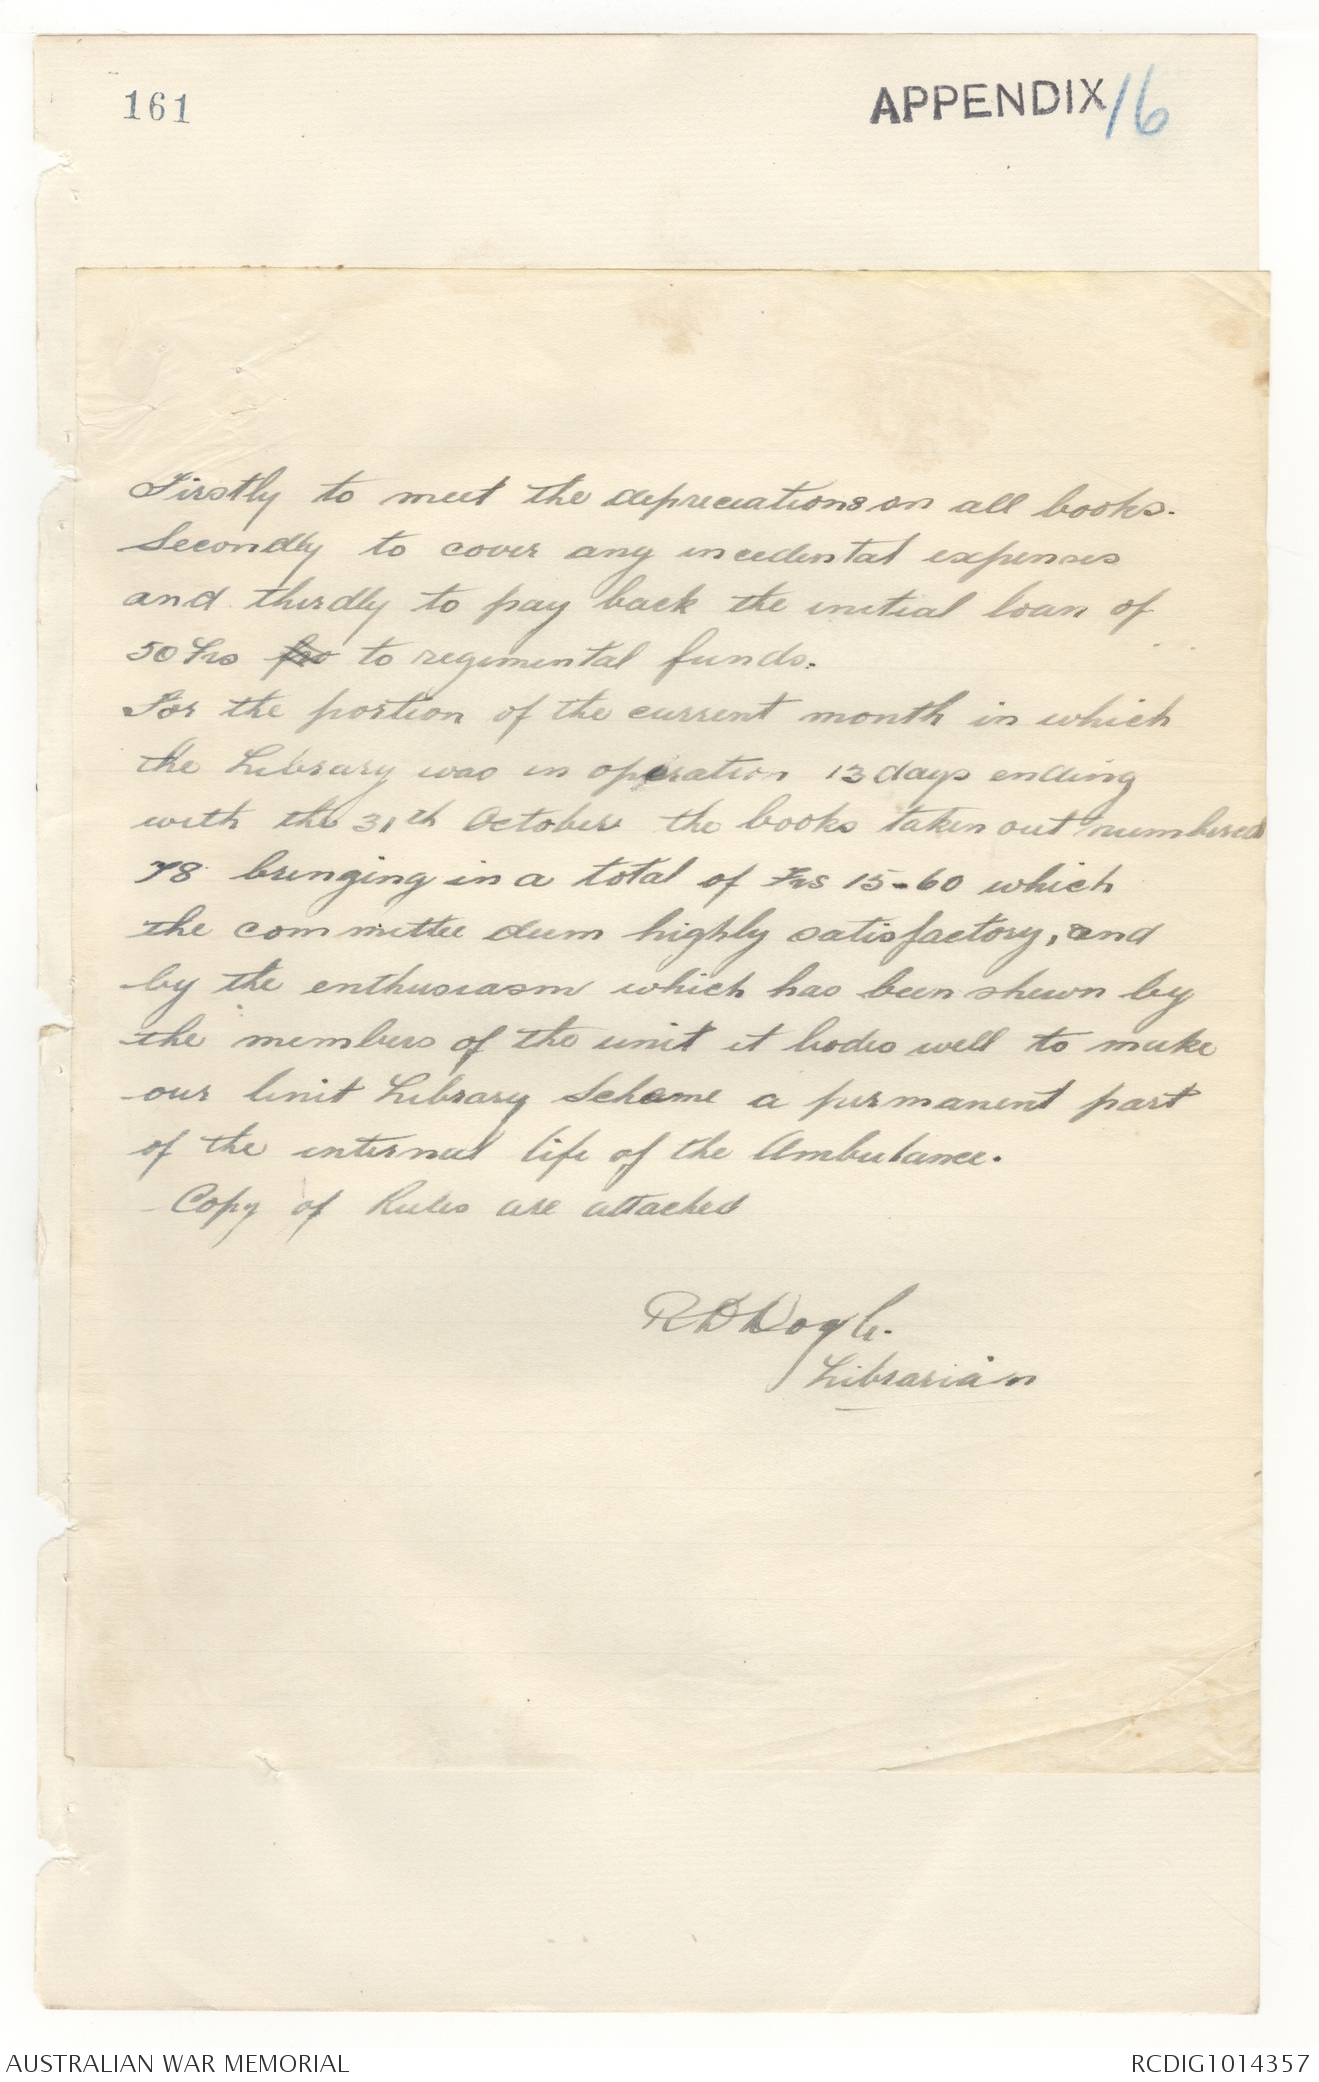 161
APPENDIX 16
Firstly to meet the depreciations on all books.
Secondly to cover any incedental expenses
and thirdly to pay back the initial loan of
50 Frs fro to regimental funds.
For the portion of the current month in which
the Library was in operation 13 days ending
with the 31th October the books taken out numbered
78 bringing in a total of Frs 15-60 which
the committee deem highly satisfactory, and
by the enthusiasm which has been shewn by
the members of the unit it bodes well to make
our Unit Library Scheme a permanent part
of the internal life of the Ambulance.
Copy of Rules are attached
R D Doyle.
Librarian
AUSTRALIAN WAR MEMORIAL
RCDIG1014357